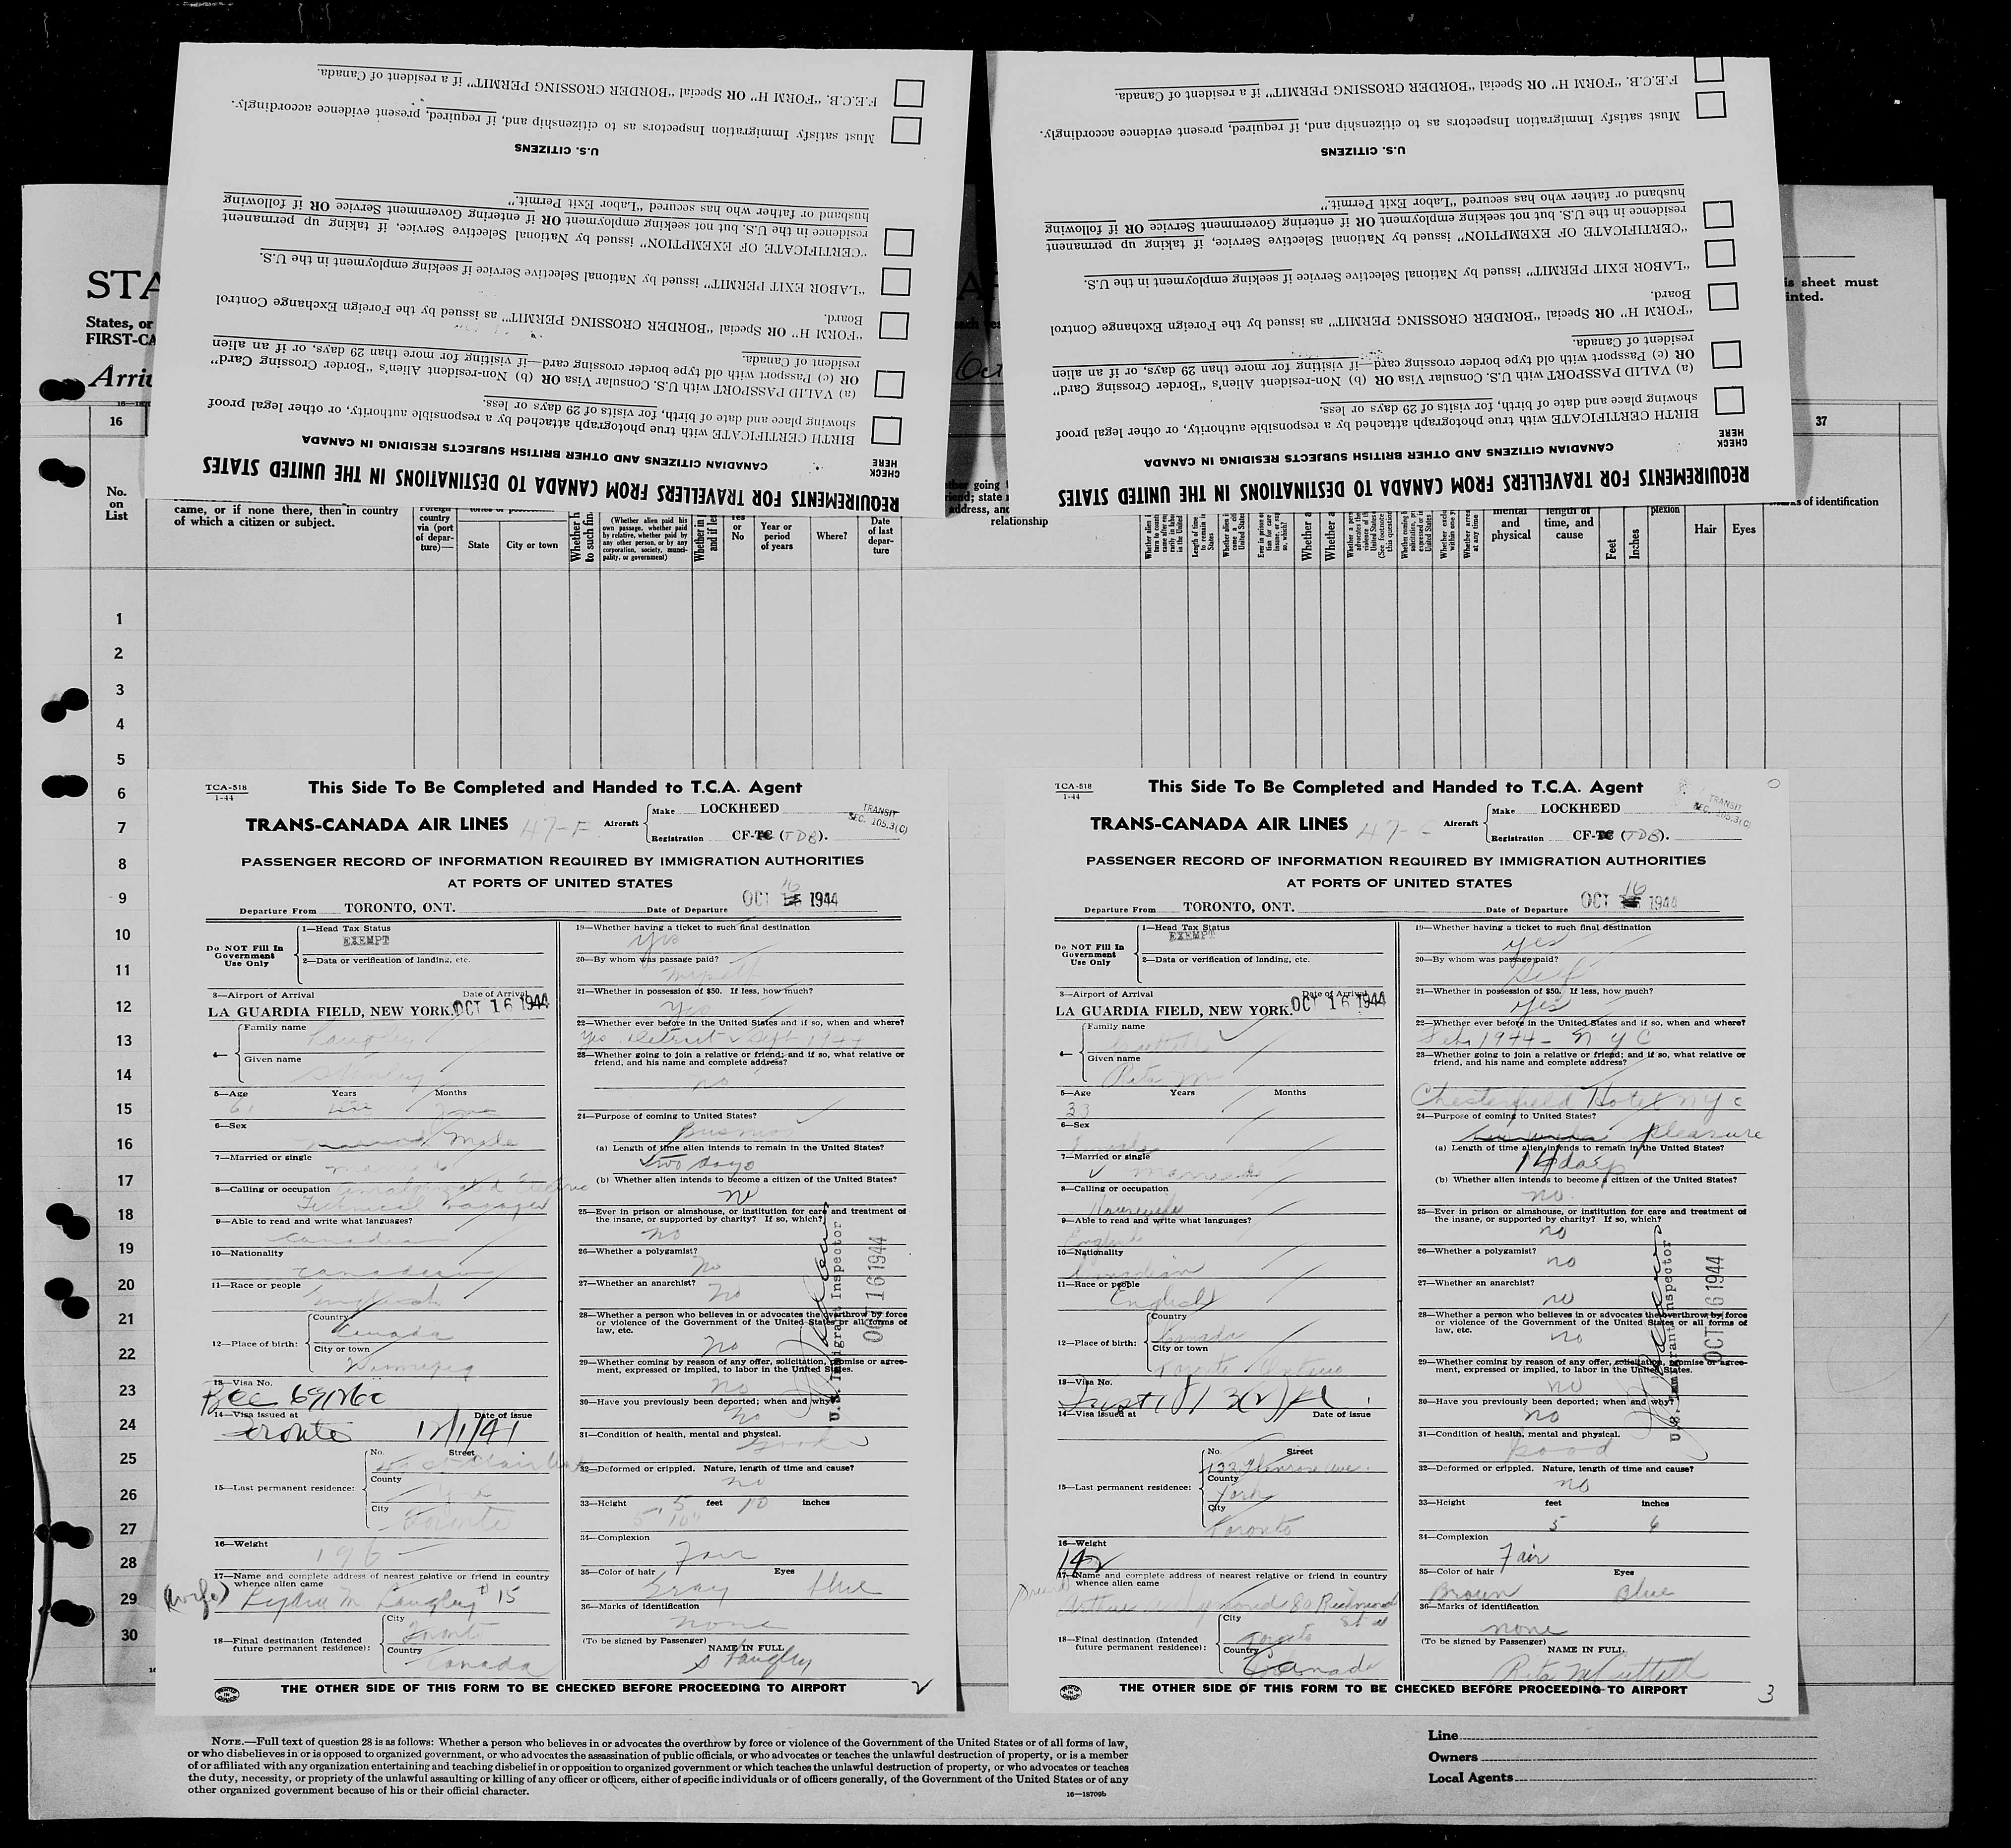 F.E.C.B. "FORM H" OR Special "BORDER CROSSING PERMIT" if a resident of Canada.
Must satisfy Immigration Inspectors as to citizenship and, if required, present evidence accordingly.
U.S. CITIZENS
husband or father who has secured "Labor Exit Permit."
residence in the U.S. but not seeking employment OR if entering Government Service OR if following
"CERTIFICATE OF EXEMPTION" issued by National Selective Service, if taking up permanent
"LABOR EXIT PERMIT" issued by National Selective Service if seeking employment in the U.S.
Board.
"FORM H" OR Special "BORDER CROSSING PERMIT" as issued by the Foreign Exchange Control
resident of Canada.
OR (c) Passport with old type border crossing card—if visiting for more than 29 days, or if an alien
(a) VALID PASSPORT with U.S. Consular Visa OR (b) Non-resident Alien's "Border Crossing Card"
showing place and date of birth, for visits of 29 days or less.
BIRTH CERTIFICATE with true photograph attached by a responsible authority, or other legal proof
CANADIAN CITIZENS AND OTHER BRITISH SUBJECTS RESIDING IN CANADA
CHECK HERE
REQUIREMENTS FOR TRAVELLERS FROM CANADA TO DESTINATIONS IN THE UNITED STATES
F.E.C.B. "FORM H" OR Special "BORDER CROSSING PERMIT" if a resident of Canada.
Must satisfy Immigration Inspectors as to citizenship and, if required, present evidence accordingly.
U.S. CITIZENS
husband or father who has secured "Labor Exit Permit."
residence in the U.S. but not seeking employment OR if entering Government Service OR if following
"CERTIFICATE OF EXEMPTION" issued by National Selective Service, if taking up permanent
"LABOR EXIT PERMIT" issued by National Selective Service if seeking employment in the U.S.
Board.
"FORM H" OR Special "BORDER CROSSING PERMIT" as issued by the Foreign Exchange Control
resident of Canada.
OR (c) Passport with old type border crossing card—if visiting for more than 29 days, or if an alien
(a) VALID PASSPORT with U.S. Consular Visa OR (b) Non-resident Alien's "Border Crossing Card"
showing place and date of birth, for visits of 29 days or less.
BIRTH CERTIFICATE with true photograph attached by a responsible authority, or other legal proof
CANADIAN CITIZENS AND OTHER BRITISH SUBJECTS RESIDING IN CANADA
CHECK HERE
REQUIREMENTS FOR TRAVELLERS FROM CANADA TO DESTINATIONS IN THE UNITED STATES
STA
States, or
FIRST-CA
Arriv
Oct
is sheet must
inted.
16
37
No. on List
came, or if none there, then in country
of which a citizen or subject.
country via (port of departure)—
State
City or town
(Whether alien paid his own passage, whether paid by relative, whether paid by any other person, or by any corporation, society, municipality, or government)
Yes or No
Year or period of years
Where?
Date of last departure
relationship
mental and physical
length of time, and cause
Feet
Inches
plexion
Hair
Eyes
of identification
1
2
3
4
5
6
7
8
9
10
11
12
13
14
15
16
17
18
19
20
21
22
23
24
25
26
27
28
29
30
TCA-518
1-44
This Side To Be Completed and Handed to T.C.A. Agent
TRANS-CANADA AIR LINES 47-F
Aircraft
Make LOCKHEED
Registration CF-TC (TDB).
TRANSIT
SEC. 105.3(C)
PASSENGER RECORD OF INFORMATION REQUIRED BY IMMIGRATION AUTHORITIES
AT PORTS OF UNITED STATES
Departure From TORONTO, ONT. Date of Departure OCT 16 1944
Do NOT Fill In
Government
Use Only
1—Head Tax Status
EXEMPT
2—Data or verification of landing, etc.
3—Airport of Arrival Date of Arrival
LA GUARDIA FIELD, NEW YORK. OCT 16 1944
4— Family name Langley
Given name Stanley
5—Age 61 Years Months
6—Sex Male
7—Married or single married
8—Calling or occupation
Technical Manager
9—Able to read and write what languages?
Canadian
10—Nationality
Canadian
11—Race or people
English
12—Place of birth: Country Canada
City or town Winnipeg
13—Visa No.
BCC 691260
14—Visa issued at Date of issue
Toronto 12/1/41
15—Last permanent residence:
No. Street
County
City Toronto
16—Weight 196
17—Name and complete address of nearest relative or friend in country
whence alien came
(wife) Lydia M Langley # 15
18—Final destination (Intended
future permanent residence):
City Toronto
Country Canada
19—Whether having a ticket to such final destination
yes
20—By whom was passage paid?
myself
21—Whether in possession of $50. If less, how much?
Yes
22—Whether ever before in the United States and if so, when and where?
Yes. Detroit Sept 1944
23—Whether going to join a relative or friend; and if so, what relative or
friend, and his name and complete address?
no
24—Purpose of coming to United States?
Business
(a) Length of time alien intends to remain in the United States?
two days
(b) Whether alien intends to become a citizen of the United States?
no
25—Ever in prison or almshouse, or institution for care and treatment of
the insane, or supported by charity? If so, which?
no
26—Whether a polygamist?
No
27—Whether an anarchist?
No
28—Whether a person who believes in or advocates the overthrow by force
or violence of the Government of the United States or all forms of
law, etc.
No
29—Whether coming by reason of any offer, solicitation, promise or agree-
ment, expressed or implied, to labor in the United States.
no
30—Have you previously been deported; when and why?
no
31—Condition of health, mental and physical.
good
32—Deformed or crippled. Nature, length of time and cause?
no
33—Height 5 feet 10 inches
5' 10"
34—Complexion
Fair
35—Color of hair Eyes
Gray blue
36—Marks of identification
none
(To be signed by Passenger)
NAME IN FULL
S Langley
U.S. Immigrant Inspector
OCT 16 1944
THE OTHER SIDE OF THIS FORM TO BE CHECKED BEFORE PROCEEDING TO AIRPORT
2
TCA-518
1-44
This Side To Be Completed and Handed to T.C.A. Agent
TRANS-CANADA AIR LINES 47-
Aircraft
Make LOCKHEED
Registration CF-TC (TDB).
TRANSIT
SEC. 105.3(C)
PASSENGER RECORD OF INFORMATION REQUIRED BY IMMIGRATION AUTHORITIES
AT PORTS OF UNITED STATES
Departure From TORONTO, ONT. Date of Departure OCT 16 1944
Do NOT Fill In
Government
Use Only
1—Head Tax Status
EXEMPT
2—Data or verification of landing, etc.
3—Airport of Arrival Date of Arrival
LA GUARDIA FIELD, NEW YORK. OCT 16 1944
4— Family name
Given name Rita M
5—Age 33 Years Months
6—Sex
Female
7—Married or single
married
8—Calling or occupation
Housewife
9—Able to read and write what languages?
English
10—Nationality
Canadian
11—Race or people
English
12—Place of birth: Country Canada
City or town Toronto Ontario
13—Visa No.
14—Visa issued at Date of issue
15—Last permanent residence:
No. Street
133 Glenrose Ave.
County York
City Toronto
16—Weight
142
17—Name and complete address of nearest relative or friend in country
whence alien came
Arthur 80 Richmond
St W
18—Final destination (Intended
future permanent residence):
City Toronto
Country Canada
19—Whether having a ticket to such final destination
yes
20—By whom was passage paid?
Self
21—Whether in possession of $50. If less, how much?
Yes
22—Whether ever before in the United States and if so, when and where?
Feb 1944 - N Y C
23—Whether going to join a relative or friend; and if so, what relative or
friend, and his name and complete address?
Chesterfield Hotel N Y C
24—Purpose of coming to United States?
pleasure
(a) Length of time alien intends to remain in the United States?
14 days
(b) Whether alien intends to become a citizen of the United States?
no.
25—Ever in prison or almshouse, or institution for care and treatment of
the insane, or supported by charity? If so, which?
no
26—Whether a polygamist?
no
27—Whether an anarchist?
no
28—Whether a person who believes in or advocates the overthrow by force
or violence of the Government of the United States or all forms of
law, etc.
no
29—Whether coming by reason of any offer, solicitation, promise or agree-
ment, expressed or implied, to labor in the United States.
no
30—Have you previously been deported; when and why?
no
31—Condition of health, mental and physical.
good
32—Deformed or crippled. Nature, length of time and cause?
no
33—Height feet inches
5 6
34—Complexion
Fair
35—Color of hair Eyes
Brown Blue
36—Marks of identification
none
(To be signed by Passenger)
NAME IN FULL
Rita M Cuttell
U.S. Immigrant Inspector
OCT 16 1944
THE OTHER SIDE OF THIS FORM TO BE CHECKED BEFORE PROCEEDING TO AIRPORT
3
NOTE.—Full text of question 28 is as follows: Whether a person who believes in or advocates the overthrow by force or violence of the Government of the United States or of all forms of law,
or who disbelieves in or is opposed to organized government, or who advocates the assassination of public officials, or who advocates or teaches the unlawful destruction of property, or is a member
of or affiliated with any organization entertaining and teaching disbelief in or opposition to organized government or which teaches the unlawful destruction of property, or who advocates or teaches
the duty, necessity, or propriety of the unlawful assaulting or killing of any officer or officers, either of specific individuals or of officers generally, of the Government of the United States or of any
other organized government because of his or their official character.
16—18709b
Line
Owners
Local Agents